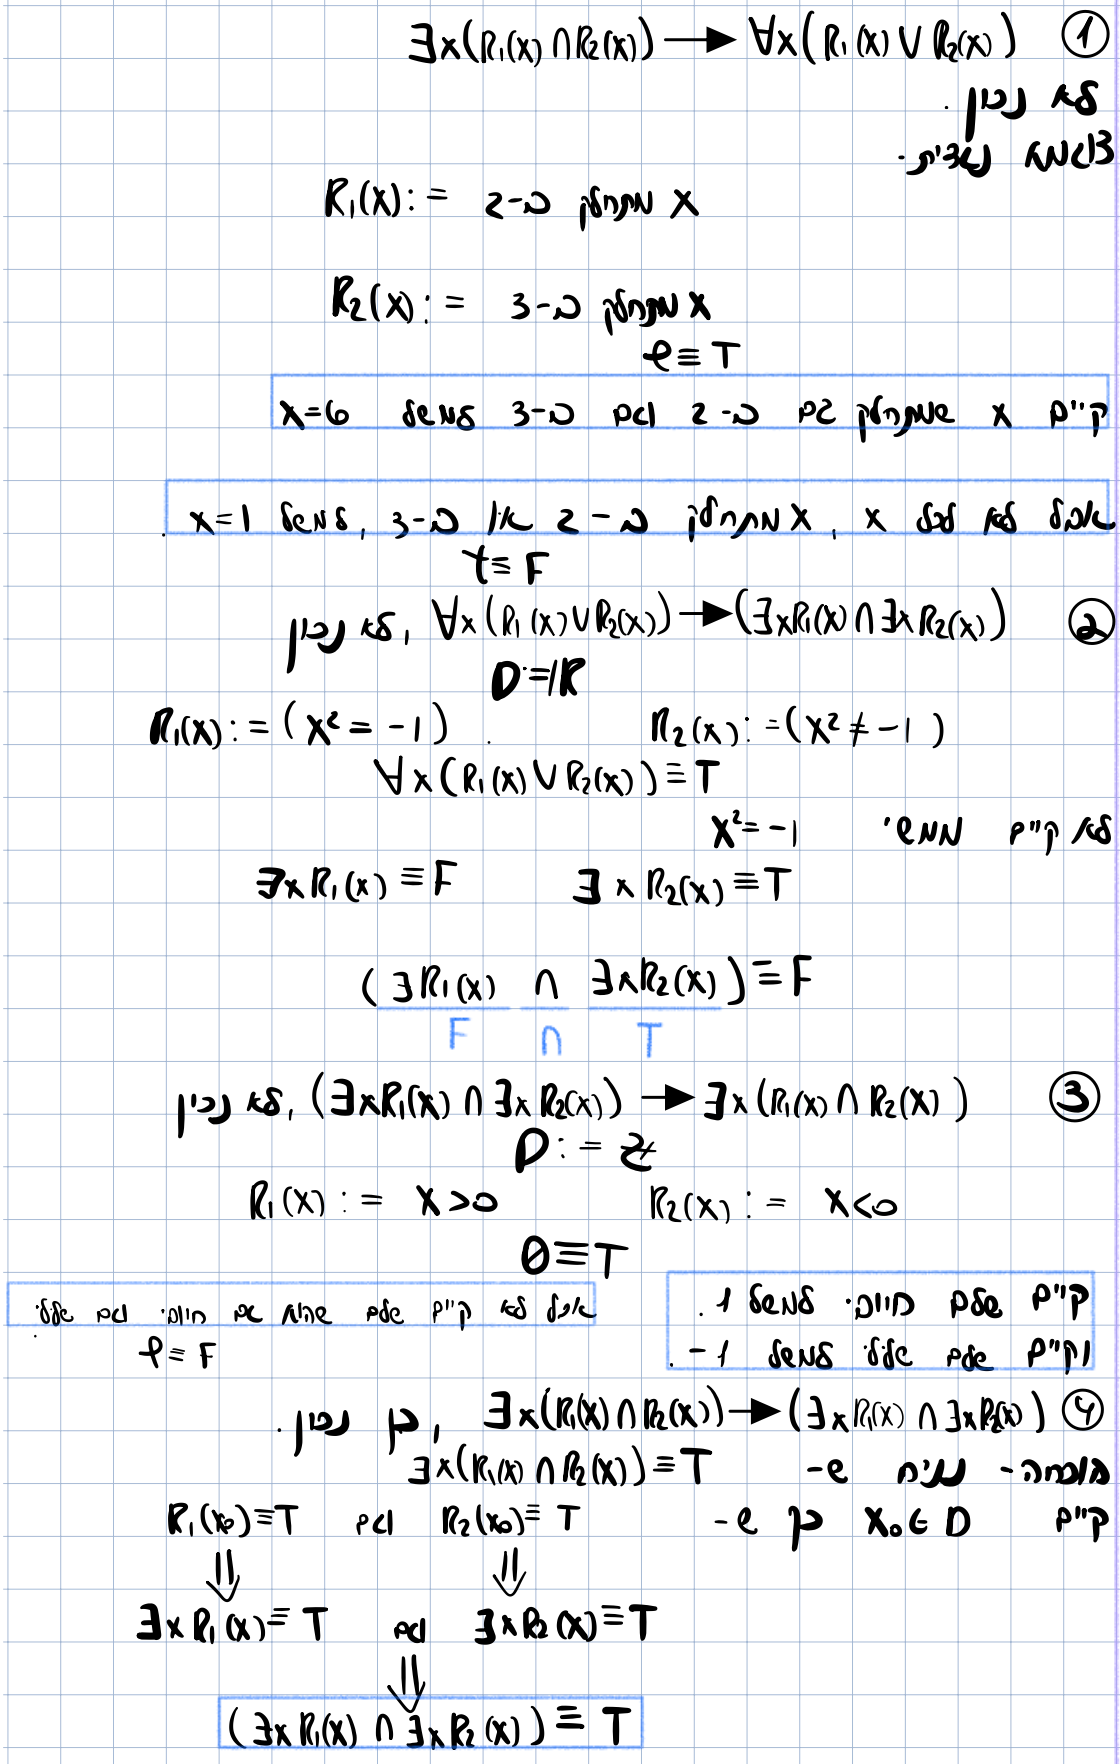 ① ∃x(R₁(x) ∩ R₂(x)) → ∀x(R₁(x) ∨ R₂(x))
לא נכון.
דוגמא נגדית.
R₁(x) := x מתחלק ב-2
R₂(x) := x מתחלק ב-3
φ ≡ T
קיים x שמתחלק גם ב-2 וגם ב-3 למשל x=6
אבל לא לכל x, x מתחלק ב-2 או ב-3, למשל x=1.
t ≡ F
② ∀x(R₁(x) ∨ R₂(x)) → (∃xR₁(x) ∩ ∃xR₂(x)), לא נכון
D := ℝ
R₁(x) := (x² = -1) . R₂(x) := (x² ≠ -1)
∀x(R₁(x) ∨ R₂(x)) ≡ T
לא קיים ממשי x² = -1
∃xR₁(x) ≡ F ∃xR₂(x) ≡ T
(∃R₁(x) ∩ ∃xR₂(x)) ≡ F
F ∩ T
③ (∃xR₁(x) ∩ ∃xR₂(x)) → ∃x(R₁(x) ∩ R₂(x)), לא נכון
D := ℤ
R₁(x) := x>0 R₂(x) := x<0
θ ≡ T
קיים שלם חיובי למשל 1.
וקיים שלם שלילי למשל 1-.
אבל לא קיים שלם שהוא גם חיובי וגם שלילי.
φ ≡ F
④ ∃x(R₁(x) ∩ R₂(x)) → (∃xR₁(x) ∩ ∃xR₂(x)), כן נכון.
הוכחה- נניח ש- ∃x(R₁(x) ∩ R₂(x)) ≡ T
קיים x₀ ∈ D כך ש- R₁(x₀) ≡ T וגם R₂(x₀) ≡ T
⇓ ⇓
∃xR₁(x) ≡ T וגם ∃xR₂(x) ≡ T
⇓
(∃xR₁(x) ∩ ∃xR₂(x)) ≡ T